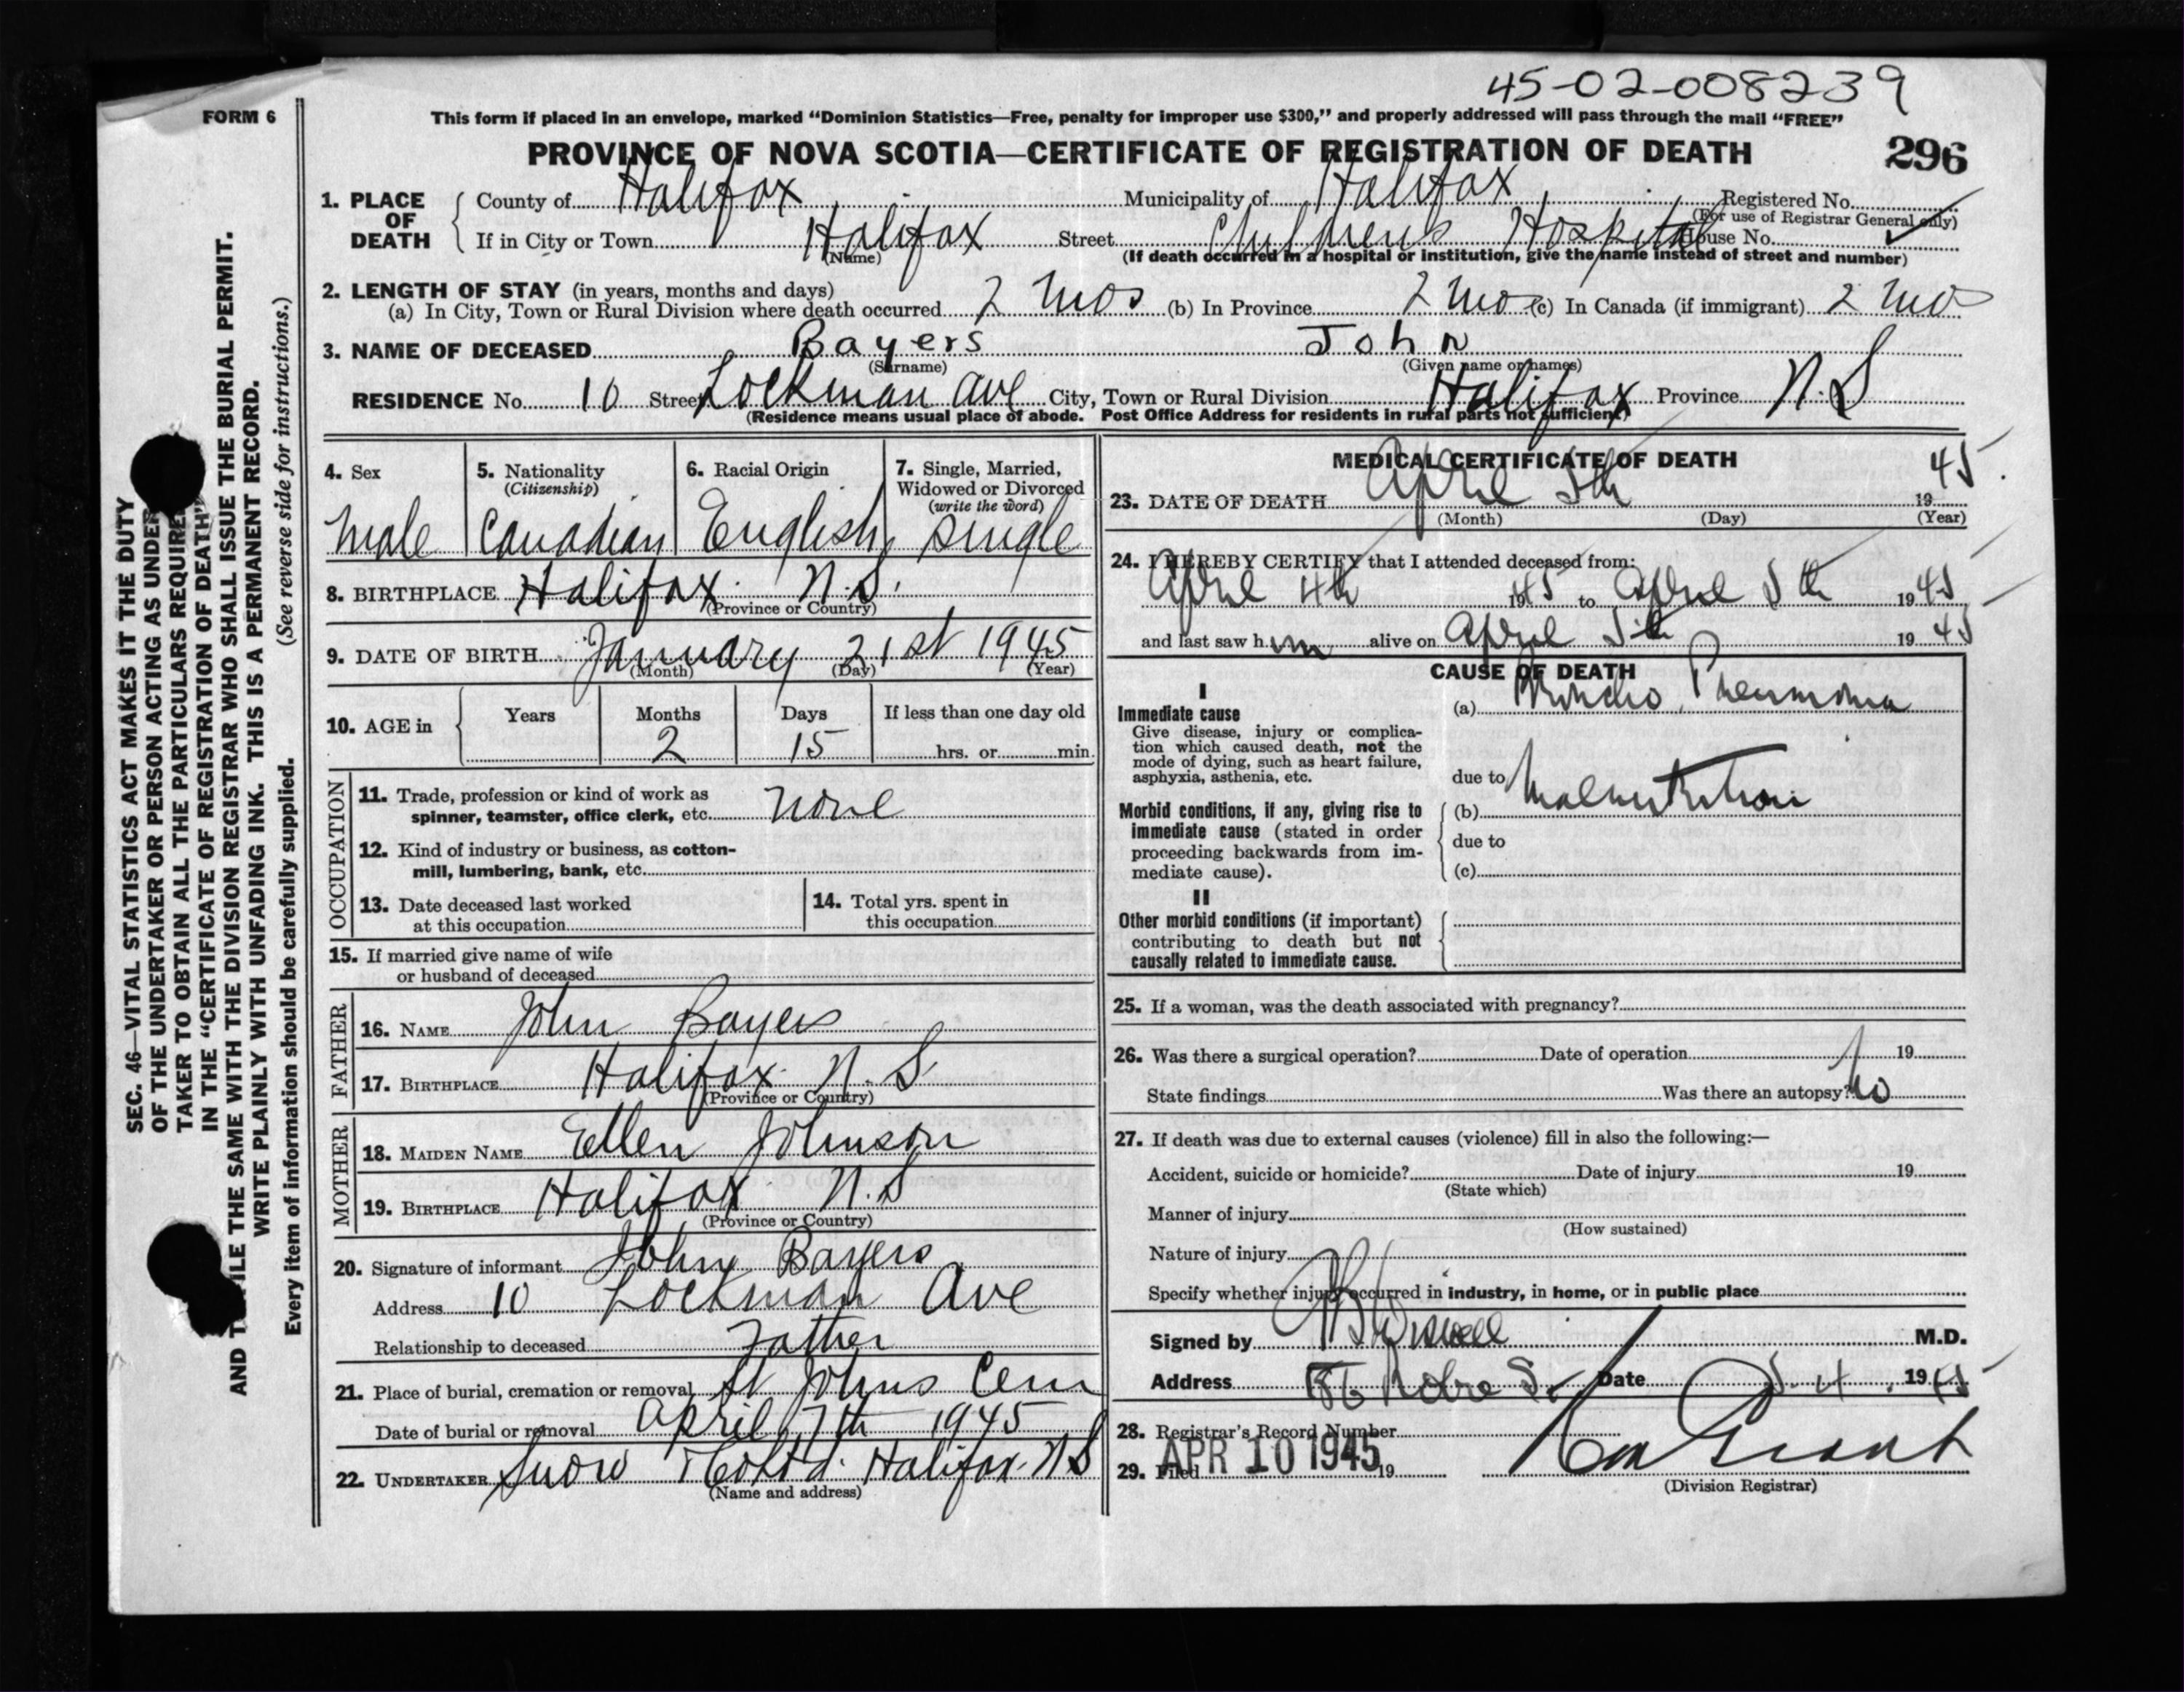 45-02-008239
FORM 6
This form if placed in an envelope, marked "Dominion Statistics—Free, penalty for improper use $300," and properly addressed will pass through the mail "FREE"
PROVINCE OF NOVA SCOTIA—CERTIFICATE OF REGISTRATION OF DEATH 296
SEC. 46—VITAL STATISTICS ACT MAKES IT THE DUTY
OF THE UNDERTAKER OR PERSON ACTING AS UNDER
TAKER TO OBTAIN ALL THE PARTICULARS REQUIRE
IN THE "CERTIFICATE OF REGISTRATION OF DEATH"
AND T FILE THE SAME WITH THE DIVISION REGISTRAR WHO SHALL ISSUE THE BURIAL PERMIT.
WRITE PLAINLY WITH UNFADING INK. THIS IS A PERMANENT RECORD.
Every item of information should be carefully supplied. (See reverse side for instructions.)
1. PLACE OF DEATH
County of Halifax Municipality of Halifax Registered No.
(For use of Registrar General only)
If in City or Town Halifax Street Childrens Hospital House No.
(Name) (If death occurred in a hospital or institution, give the name instead of street and number)
2. LENGTH OF STAY (in years, months and days)
(a) In City, Town or Rural Division where death occurred 2 mos (b) In Province 2 mo (c) In Canada (if immigrant) 2 mo
3. NAME OF DECEASED Bayers John
(Surname) (Given name or names)
RESIDENCE No. 10 Street Lockman Ave City, Town or Rural Division Halifax Province N.S
(Residence means usual place of abode. Post Office Address for residents in rural parts not sufficient)
4. Sex
male
5. Nationality
(Citizenship)
Canadian
6. Racial Origin
English
7. Single, Married,
Widowed or Divorced
(write the word)
single
8. BIRTHPLACE Halifax N.S.
(Province or Country)
9. DATE OF BIRTH January 21st 1945
(Month) (Day) (Year)
10. AGE in
Years Months Days If less than one day old
2 15 hrs. or min.
OCCUPATION
11. Trade, profession or kind of work as
spinner, teamster, office clerk, etc. None
12. Kind of industry or business, as cotton-
mill, lumbering, bank, etc.
13. Date deceased last worked
at this occupation
14. Total yrs. spent in
this occupation
15. If married give name of wife
or husband of deceased
FATHER
16. NAME John Bayers
17. BIRTHPLACE Halifax N.S.
(Province or Country)
MOTHER
18. MAIDEN NAME Ellen Johnson
19. BIRTHPLACE Halifax N.S
(Province or Country)
20. Signature of informant John Bayers
Address 10 Lockman Ave
Relationship to deceased Father
21. Place of burial, cremation or removal St Johns Cem
Date of burial or removal April 7th 1945
22. UNDERTAKER Snow & Co Ltd. Halifax N S
(Name and address)
MEDICAL CERTIFICATE OF DEATH
23. DATE OF DEATH April 5th 1945
(Month) (Day) (Year)
24. I HEREBY CERTIFY that I attended deceased from:
April 4th 1945 to April 5th 1945
and last saw him alive on April 5th 1945
CAUSE OF DEATH
I
Immediate cause
Give disease, injury or complica-
tion which caused death, not the
mode of dying, such as heart failure,
asphyxia, asthenia, etc.
(a) Broncho Pneumonia
due to
Morbid conditions, if any, giving rise to
immediate cause (stated in order
proceeding backwards from im-
mediate cause).
(b) Malnutrition
due to
(c)
II
Other morbid conditions (if important)
contributing to death but not
causally related to immediate cause.
25. If a woman, was the death associated with pregnancy?
26. Was there a surgical operation? Date of operation 19
State findings Was there an autopsy? No
27. If death was due to external causes (violence) fill in also the following:—
Accident, suicide or homicide? Date of injury 19
(State which)
Manner of injury
(How sustained)
Nature of injury
Specify whether injury occurred in industry, in home, or in public place
Signed by M.D.
Address Date 5.4.1945
28. Registrar's Record Number
29. Filed APR 10 1945 19
(Division Registrar)